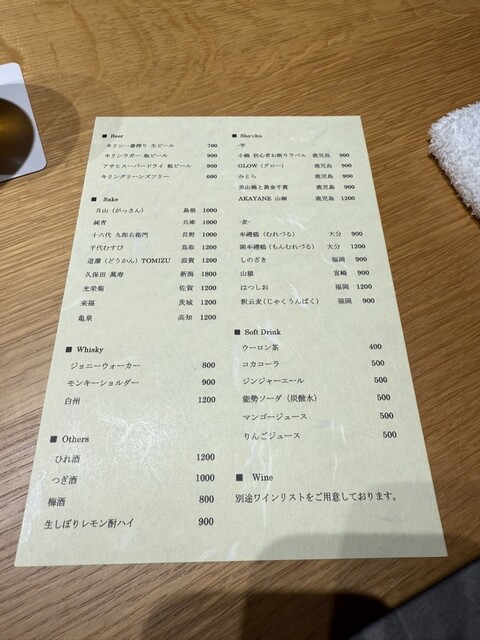 ■ Beer
キリン一番搾り 生ビール 700
キリンラガー 瓶ビール 900
アサヒスーパードライ 瓶ビール 900
キリングリーンズフリー 600
■ Sake
月山（がっさん） 島根 1000
純青 兵庫 1000
十六代 九郎右衛門 長野 1000
千代むすび 鳥取 1200
道灌（どうかん）TOMIZU 滋賀 1200
久保田 萬寿 新潟 1800
光栄菊 佐賀 1200
来福 茨城 1200
亀泉 高知 1200
■ Whisky
ジョニーウォーカー 800
モンキーショルダー 900
白州 1200
■ Others
ひれ酒 1200
つぎ酒 1000
梅酒 800
生しぼりレモン酎ハイ 900
■ Shochu
-芋-
小鶴 初心者お断りラベル 鹿児島 900
GLOW（グロー） 鹿児島 900
みとら 鹿児島 900
美山錦と黄金千貫 鹿児島 900
AKAYANE 山椒 鹿児島 1200
-麦-
牟禮鶴（むれづる） 大分 900
（もんむれづる） 大分 1200
しのざき 福岡 900
山猿 宮崎 900
はつしお 福岡 1200
釈云麦（じゃくうんばく） 福岡 900
■ Soft Drink
ウーロン茶 400
コカコーラ 500
ジンジャーエール 500
能勢ソーダ（炭酸水） 500
マンゴージュース 500
りんごジュース 500
■ Wine
別途ワインリストをご用意しております。